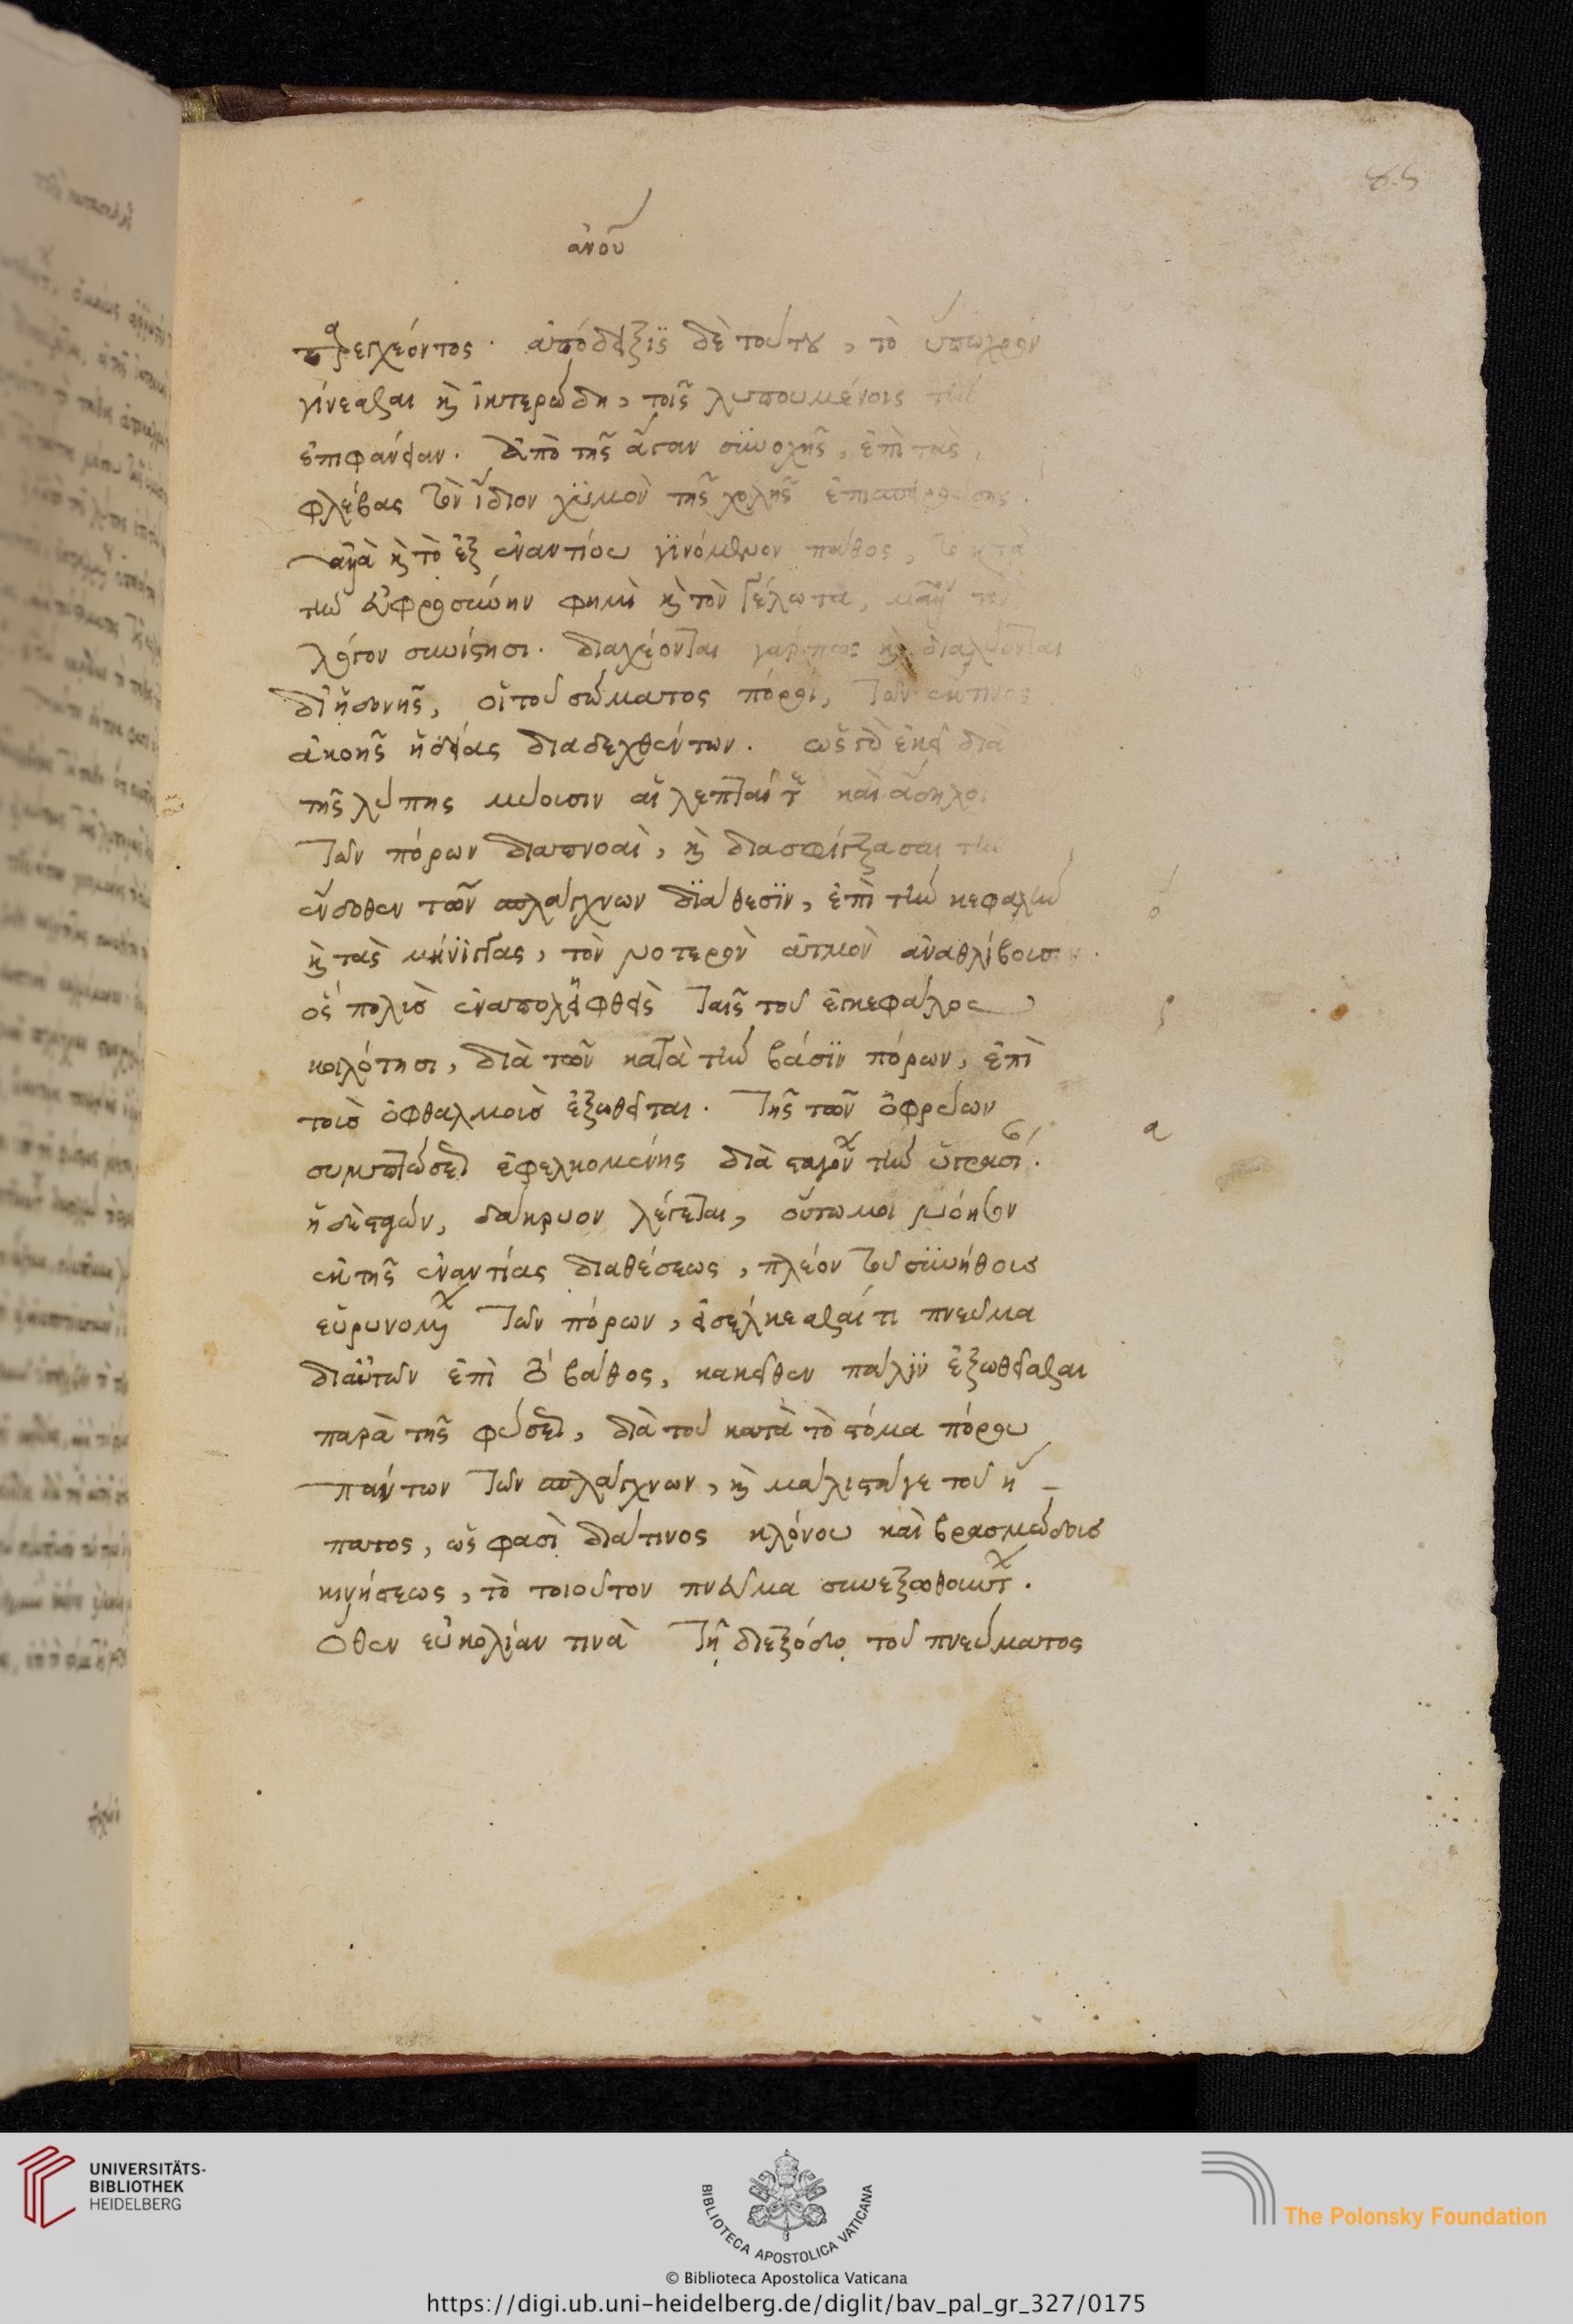 85
ἀνοῦ
παρεγχέοντος. ἀπόδειξις δὲ τούτου, τὸ ὕπωχρον
γίνεσθαι καὶ ἰκτερώδη, τοῖς λυπουμένοις τὴν
ἐπιφάνειαν. ἀπὸ τῆς ἄγαν συνολκῆς, ἐπὶ τὰς
φλέβας τὸν ἴδιον χυμὸν τῆς χολῆς ἐπισπειρούσης.
ἀλλὰ καὶ τὸ ἐξ ἐναντίου γινόμενον πάθος, τὸ κατὰ
τὴν εὐφροσύνην φημὶ καὶ τὸν γέλωτα, μᾶλλον τὸν
λόγον συνίστησι. διαχέονται γάρ πως καὶ διαλύονται
δι' ἡδονῆς, οἱ τοῦ σώματος πόροι, τῶν ἔκ τινος
ἀκοῆς ἡδείας διαδεχθέντων. ὥσπερ ἐκεῖ διὰ
τῆς λύπης μύουσιν αἱ λεπταί τε καὶ ἄδηλοι
τῶν πόρων διαπνοαὶ, καὶ διασφίγξασαι τὴν
ἔνδοθεν τῶν σπλάγχνων διάθεσιν, ἐπὶ τὴν κεφαλὴν
καὶ τὰς μήνιγγας, τὸν νοτερὸν ἀτμὸν ἀναθλίβουσιν.
ὃς πολὺς ἐναποληφθεὶς ταῖς τοῦ ἐγκεφάλου
κοιλότησι, διὰ τῶν κατὰ τὴν βάσιν πόρων, ἐπὶ
τοὺς ὀφθαλμοὺς ἐξωθεῖται. τῆς τῶν ὀφρύων
συμπτώσεως ἐφελκομένης διὰ σταγόνων τὴν ὑγρασίαν.
ἡ δὲ σταγών, δάκρυον λέγεται, οὕτω μοι νόησον
ἐκ τῆς ἐναντίας διαθέσεως, πλέον τοῦ συνήθους
εὐρυνομένων τῶν πόρων, εἰσέλκεσθαί τι πνεῦμα
δι' αὐτῶν ἐπὶ τὸ βάθος, κακεῖθεν πάλιν ἐξωθεῖσθαι
παρὰ τῆς φύσεως, διὰ τοῦ κατὰ τὸ στόμα πόρου
πάντων τῶν σπλάγχνων, καὶ μάλιστά γε τοῦ ἥ-
πατος, ὥς φασὶ διά τινος κλόνου καὶ βρασμώδους
κινήσεως, τὸ τοιοῦτον πνεῦμα συνεξωθούντων.
Ὅθεν εὐκολίαν τινὰ τῇ διεξόδῳ τοῦ πνεύματος
UNIVERSITÄTS-
BIBLIOTHEK
HEIDELBERG
BIBLIOTECA APOSTOLICA VATICANA
The Polonsky Foundation
© Biblioteca Apostolica Vaticana
https://digi.ub.uni-heidelberg.de/diglit/bav_pal_gr_327/0175